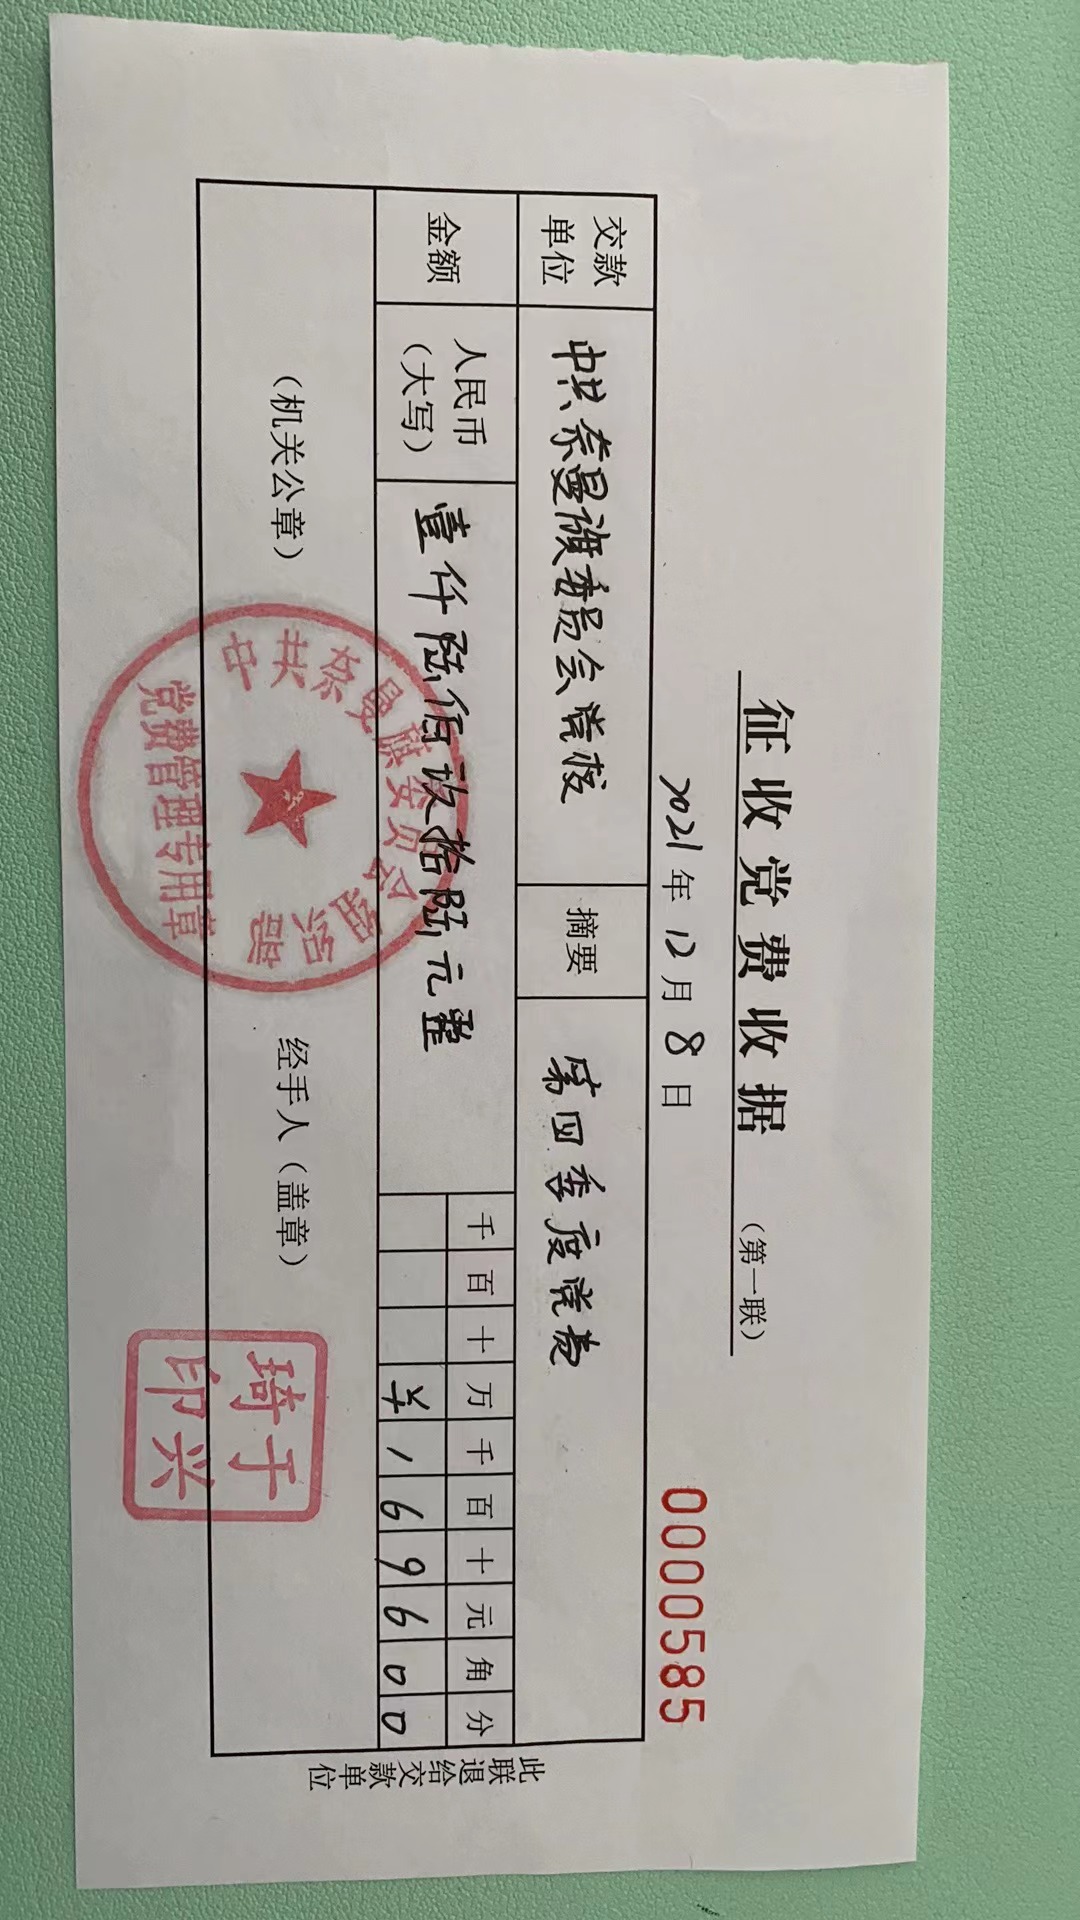 征收党费收据（第一联）
2021年12月8日
0000585
交款单位
中共奈曼旗委员会党校
摘要
第四季度党费
金额
人民币（大写）
壹仟陆佰玖拾陆元整
千百十万千百十元角分
¥169600
（机关公章）
经手人（盖章）
中共奈曼旗委员会
党费管理专用章
于兴
琦印
此联退给交款单位